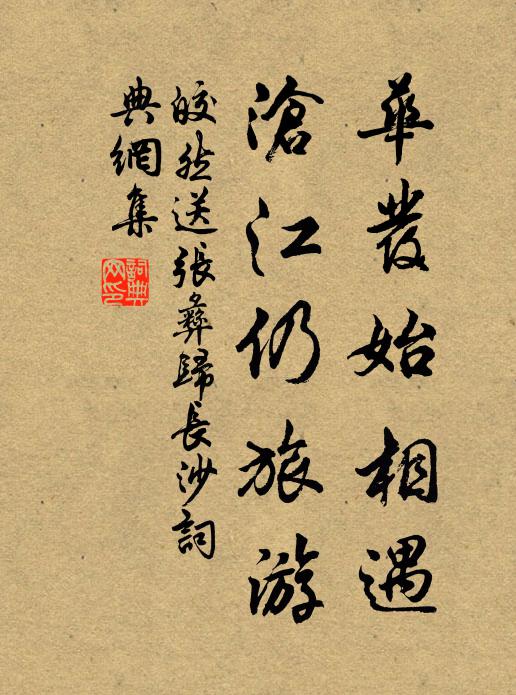 華發始相遇
滄江仍旅游
皎然送張彝歸長沙詞
典網集
詞典
网印